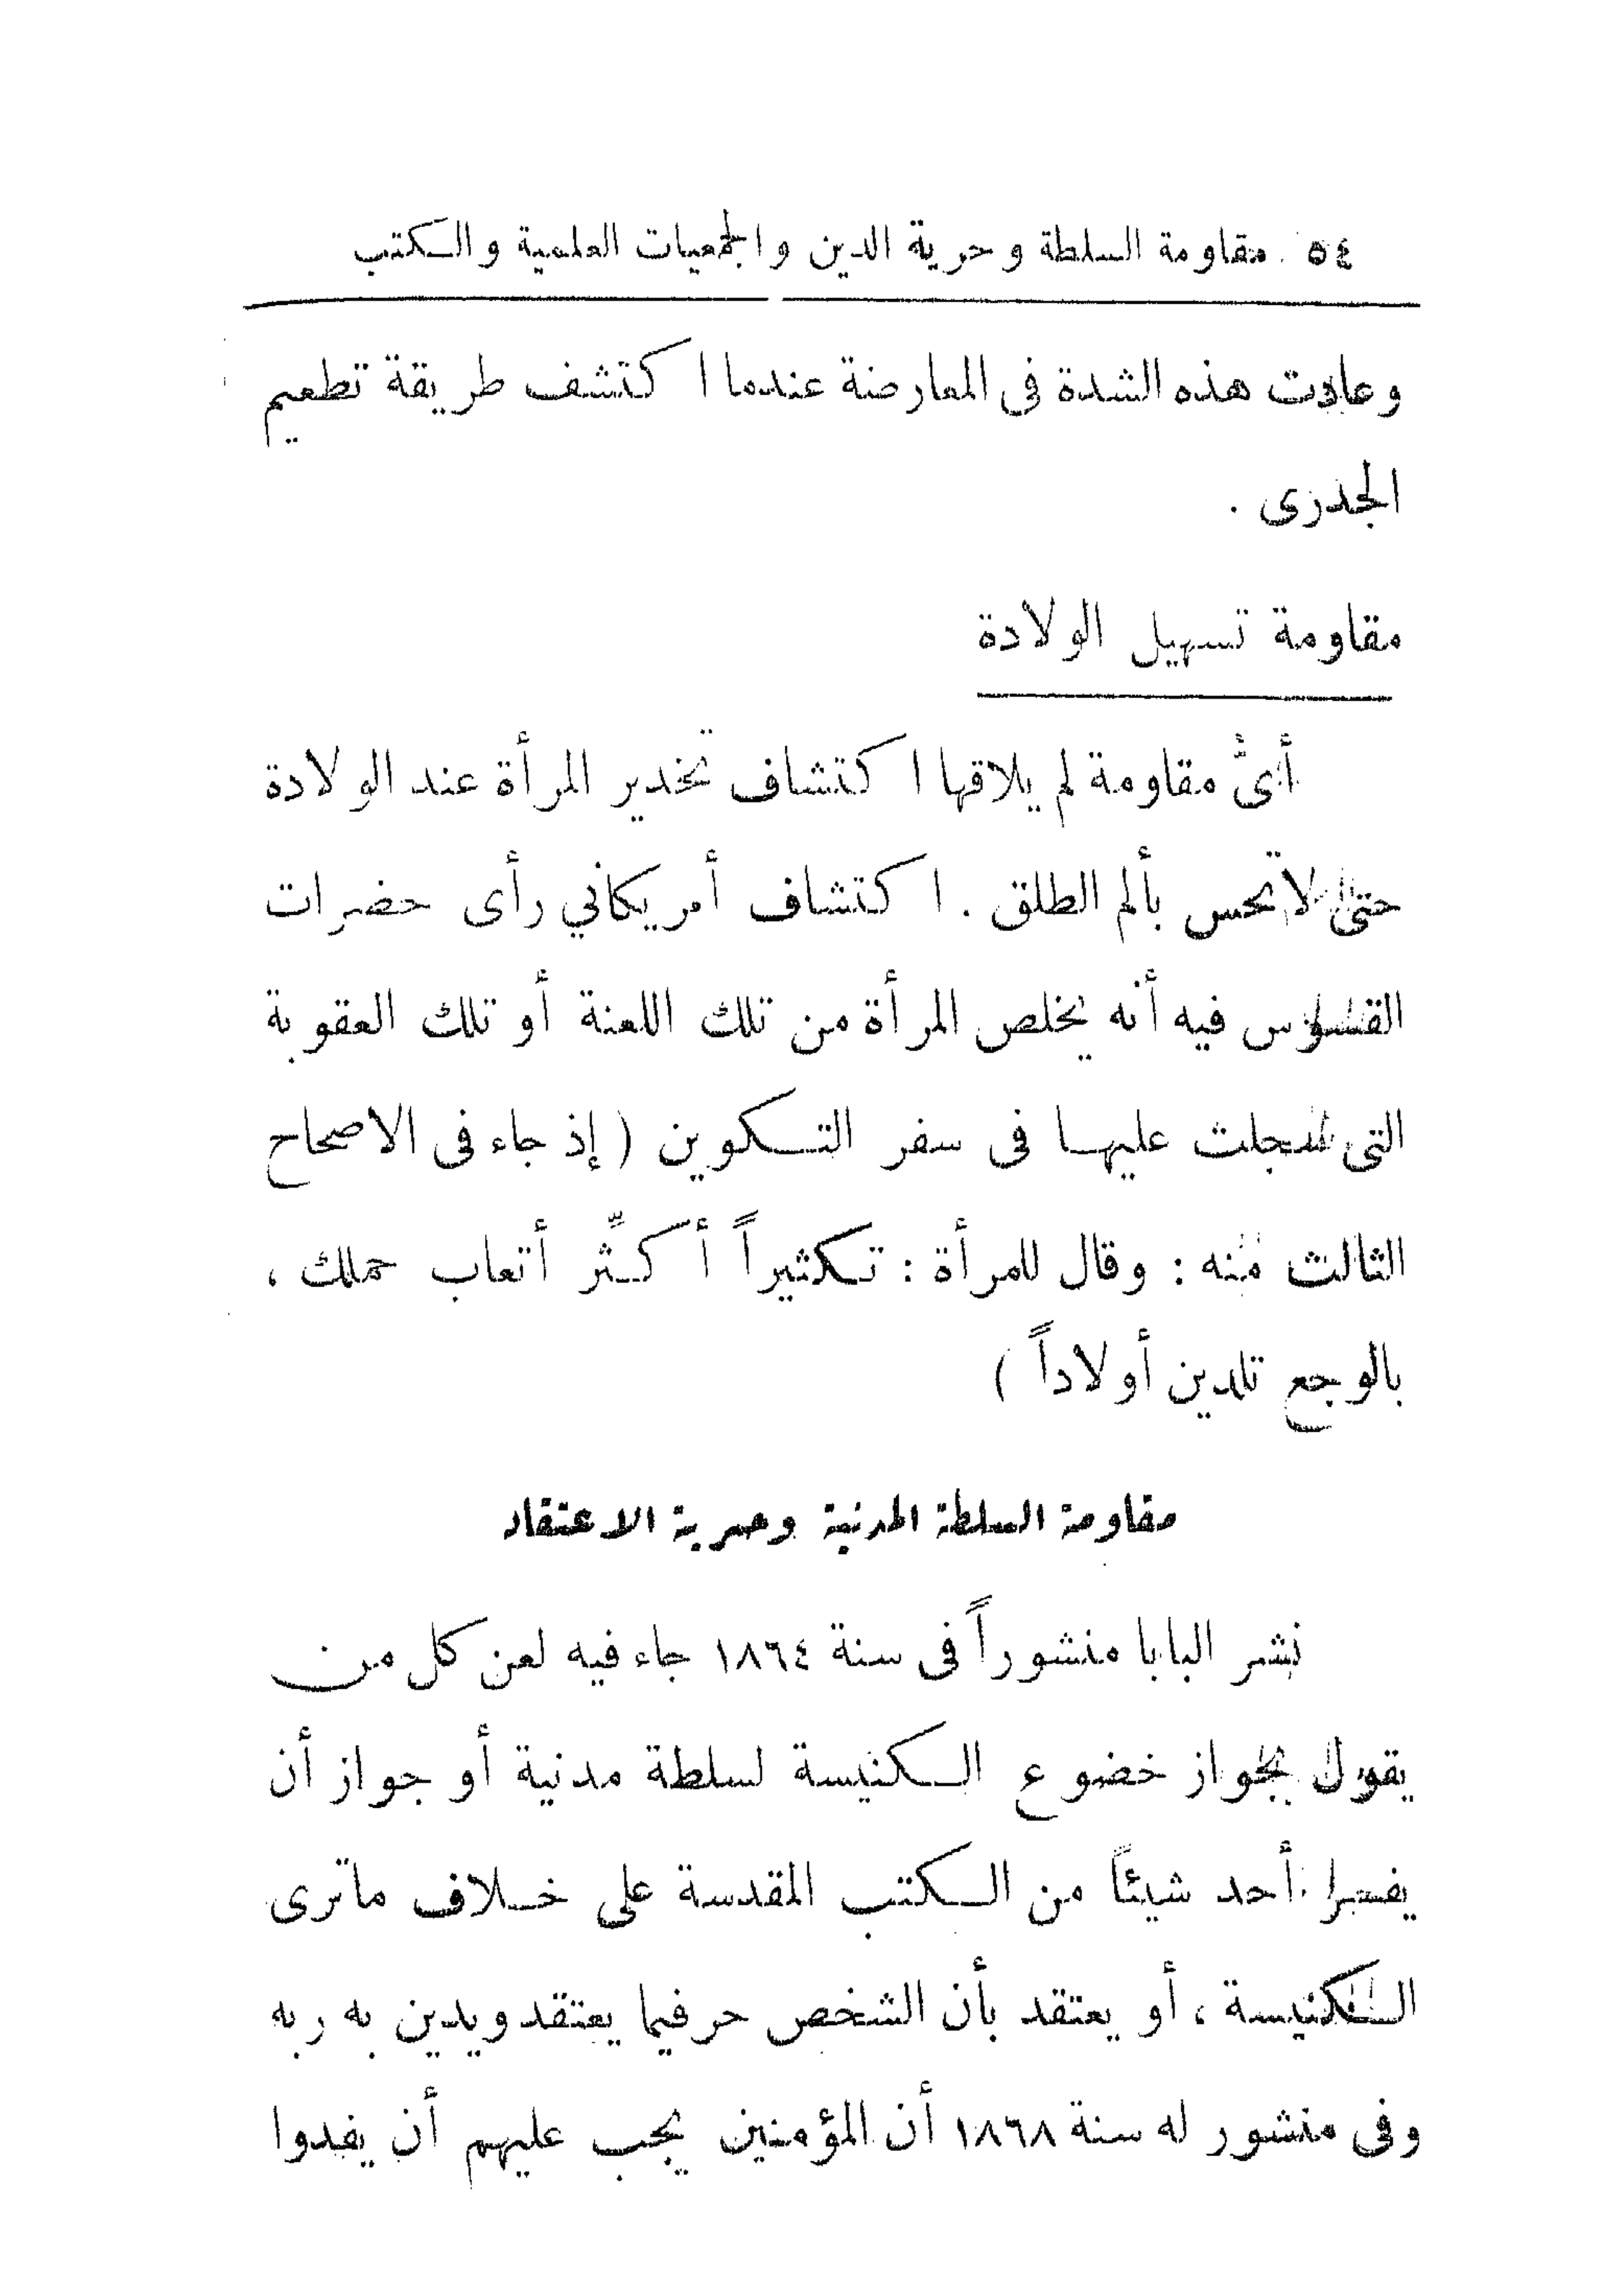 ٥٤ . مقاومة السلطة وحرية الدين والجمعيات العلمية والكتب
وعادت هذه الشدة فى المعارضة عندما اكتشف طريقة تطعيم
الجدرى .
مقاومة تسهيل الولادة
أىُّ مقاومة لم يلاقها اكتشاف تخدير المرأة عند الولادة
حتى لا تحس بألم الطلق . اكتشاف أمريكاني رأى حضرات
القسوس فيه أنه يخلص المرأة من تلك اللعنة أو تلك العقوبة
التى سجلت عليها فى سفر التكوين ( إذ جاء فى الاصحاح
الثالث منه : وقال للمرأة : تكثيراً أكثِّر أتعاب حملك ،
بالوجع تلدين أولاداً )
مقاومة السلطة المدنية وحرية الاعتقاد
نشر البابا منشوراً فى سنة ١٨٦٤ جاء فيه لعن كل من
يقول بجواز خضوع الكنيسة لسلطة مدنية أو جواز أن
يفسر أحد شيئاً من الكتب المقدسة على خلاف ما ترى
الكنيسة ، أو يعتقد بأن الشخص حر فيما يعتقد ويدين به ربه
وفى منشور له سنة ١٨٦٨ أن المؤمنين يجب عليهم أن يفدوا